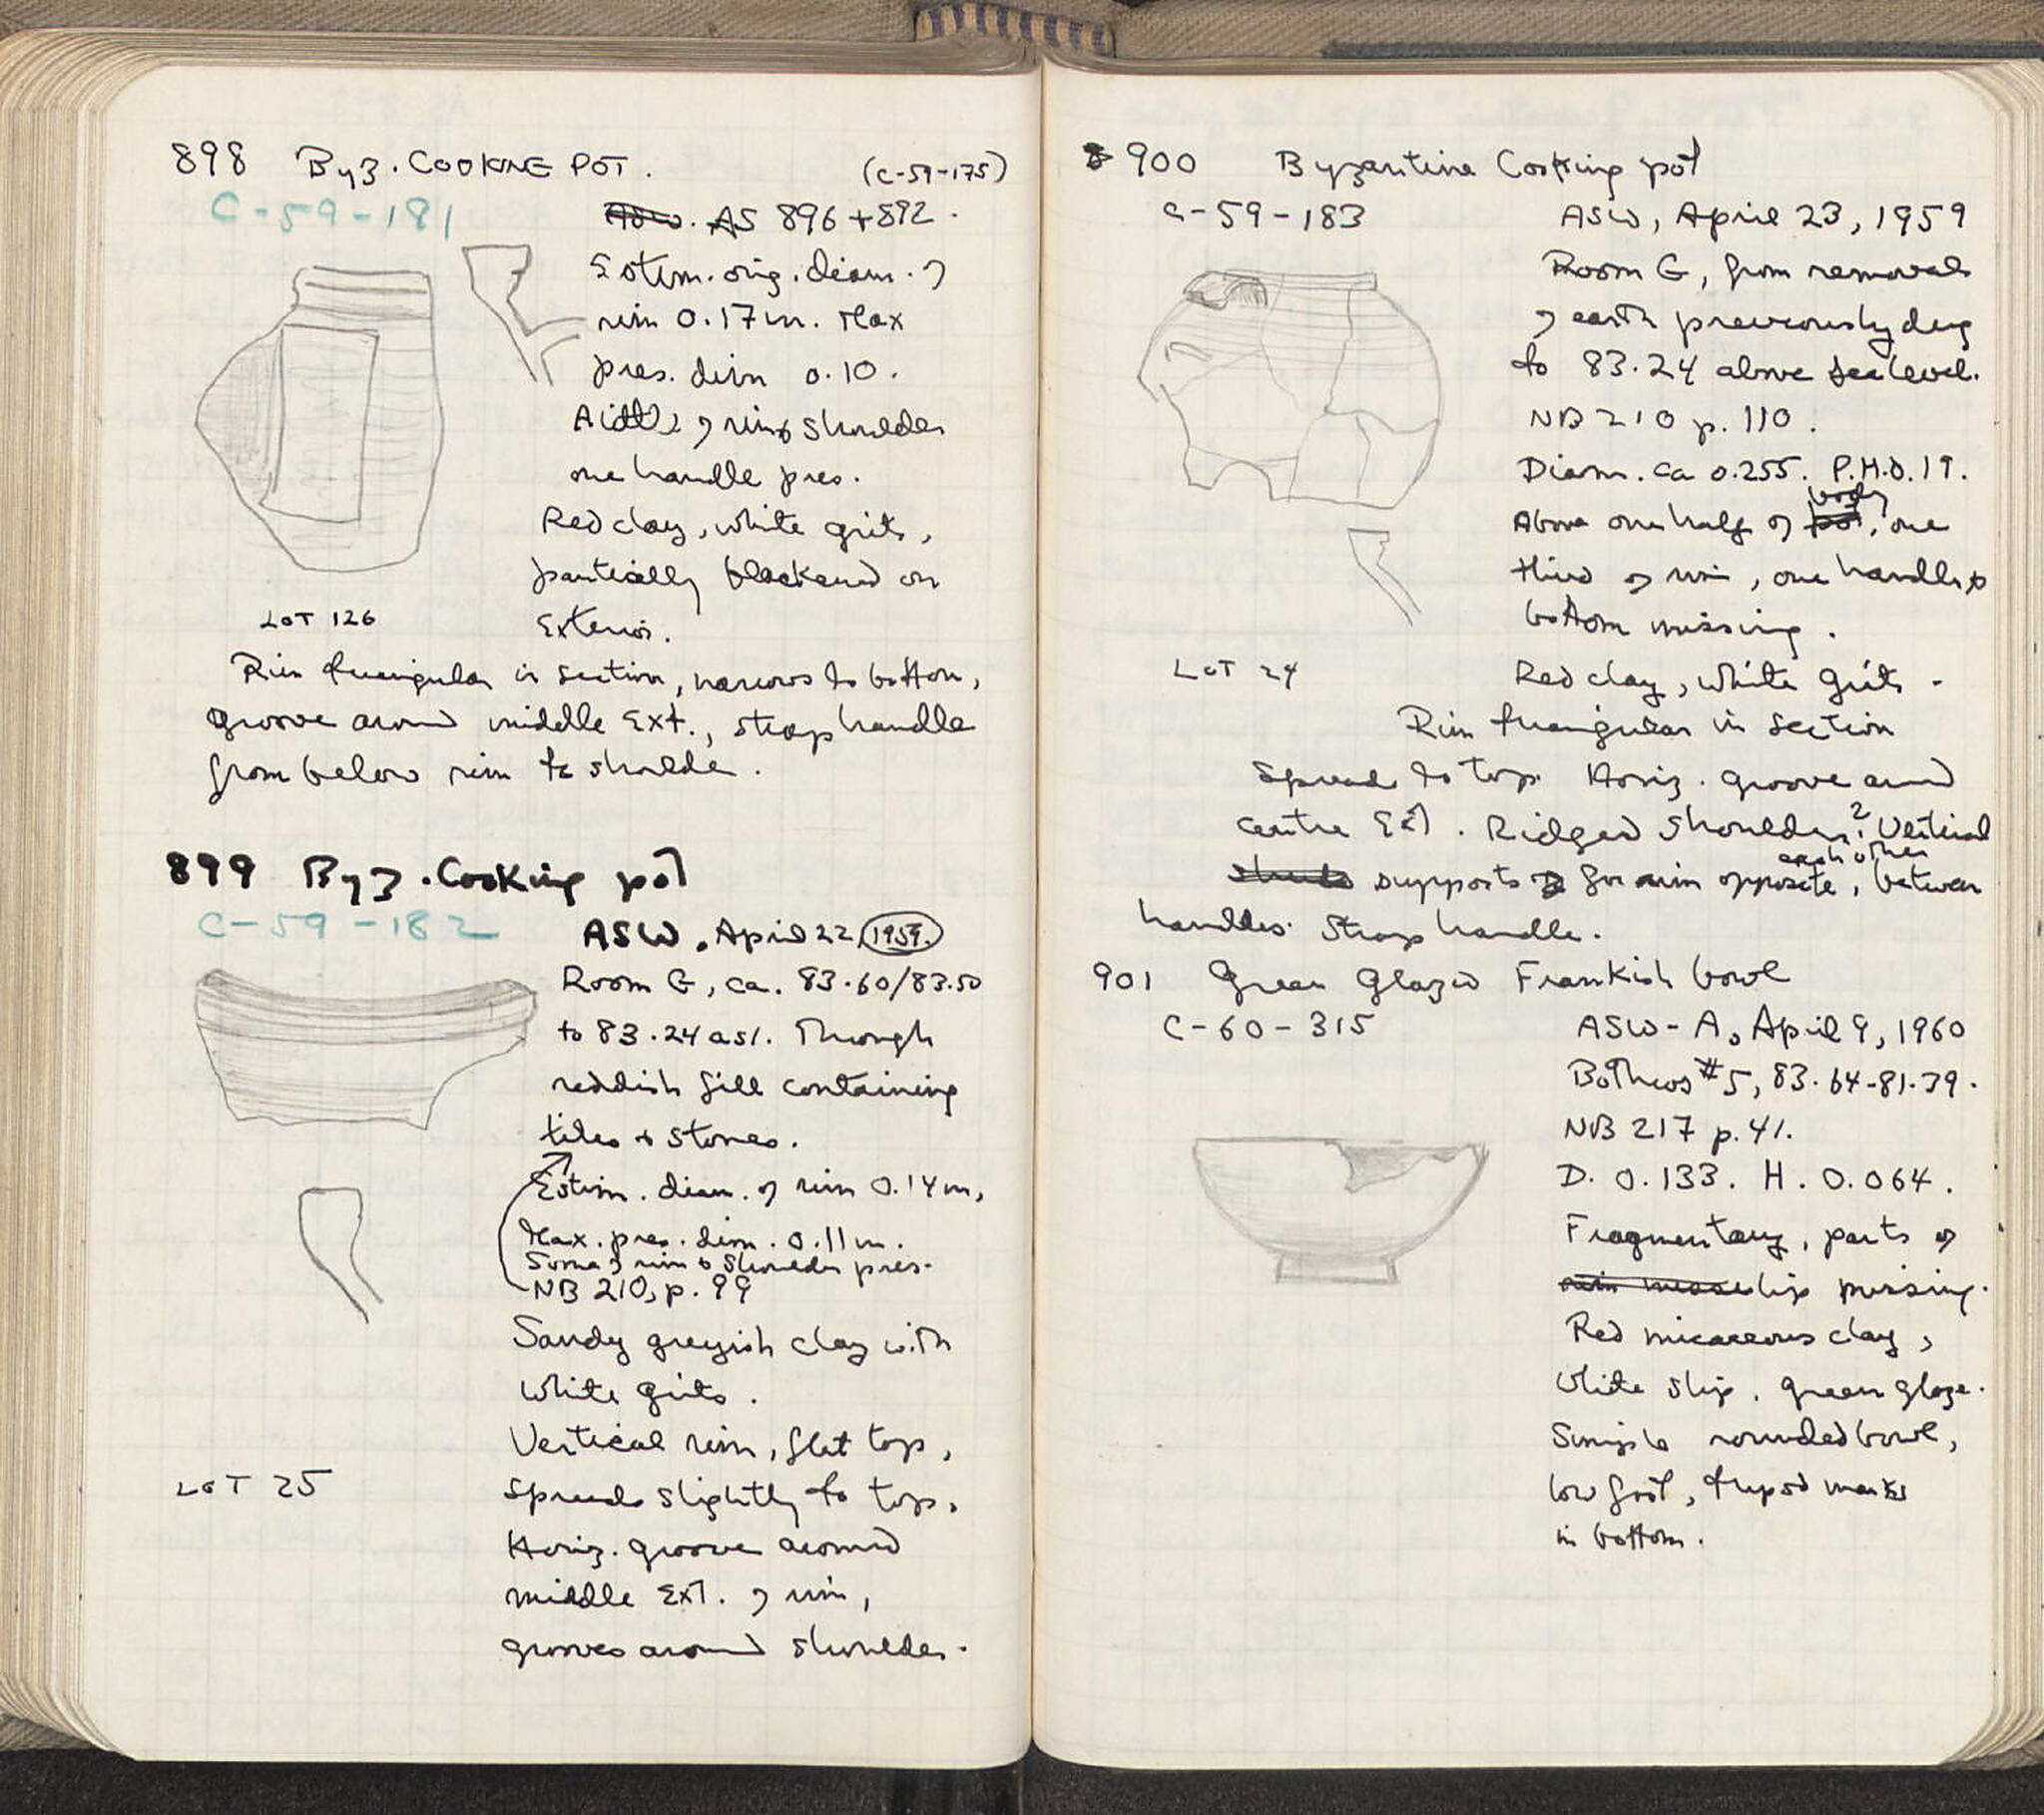 898 Byz. COOKING POT. (C-59-175)
C-59-181
AS 896 + 892.
Estim. orig. diam. of
rim 0.17 m. Max
pres. dim 0.10.
of rim & shoulder
one handle pres.
Red clay, white grits,
partically blackened on
Exterior.
LOT 126
Rim triangular in section, narrows to bottom,
groove around middle Ext., strap handle
from below rim to shoulder.
899 Byz. Cooking pot
C-59-182
ASW, April 22, 1959.
Room G, ca. 83.60/83.50
to 83.24 asl. Through
reddish fill containing
tiles & stones.
Estim. diam. of rim 0.14 m,
Max. pres. dim. 0.11 m.
Some of rim & shoulder pres.
NB 210, p. 99
Sandy greyish clay with
white grits.
Vertical rim, flat top,
LOT 25
spreads slightly to top.
Horiz. groove around
middle Ext. of rim,
grooves around shoulder.
900 Byzantine Cooking pot
C-59-183
ASW, April 23, 1959
Room G, from removal
of earth previously dug
to 83.24 above sea level.
NB 210 p. 110.
Diam. ca 0.255. P.H.0.19.
Above one half of body, one
third of rim, one handle &
bottom missing.
LOT 24
Red clay, white grits.
Rim triangular in section
spreads to top. Horiz. groove around
centre Ext. Ridged shoulder. 2 Vertical
supports for rim opposite each other, between
handles. Strap handle.
901 Green Glazed Frankish bowl
C-60-315
ASW-A, April 9, 1960
Bothros #5, 83.64-81.39.
NB 217 p. 41.
D. 0.133. H. 0.064.
Fragmentary, parts of
rim missing lip missing.
Red micaceous clay,
White slip, green glaze.
Simple rounded bowl,
low foot, tripod marks
in bottom.